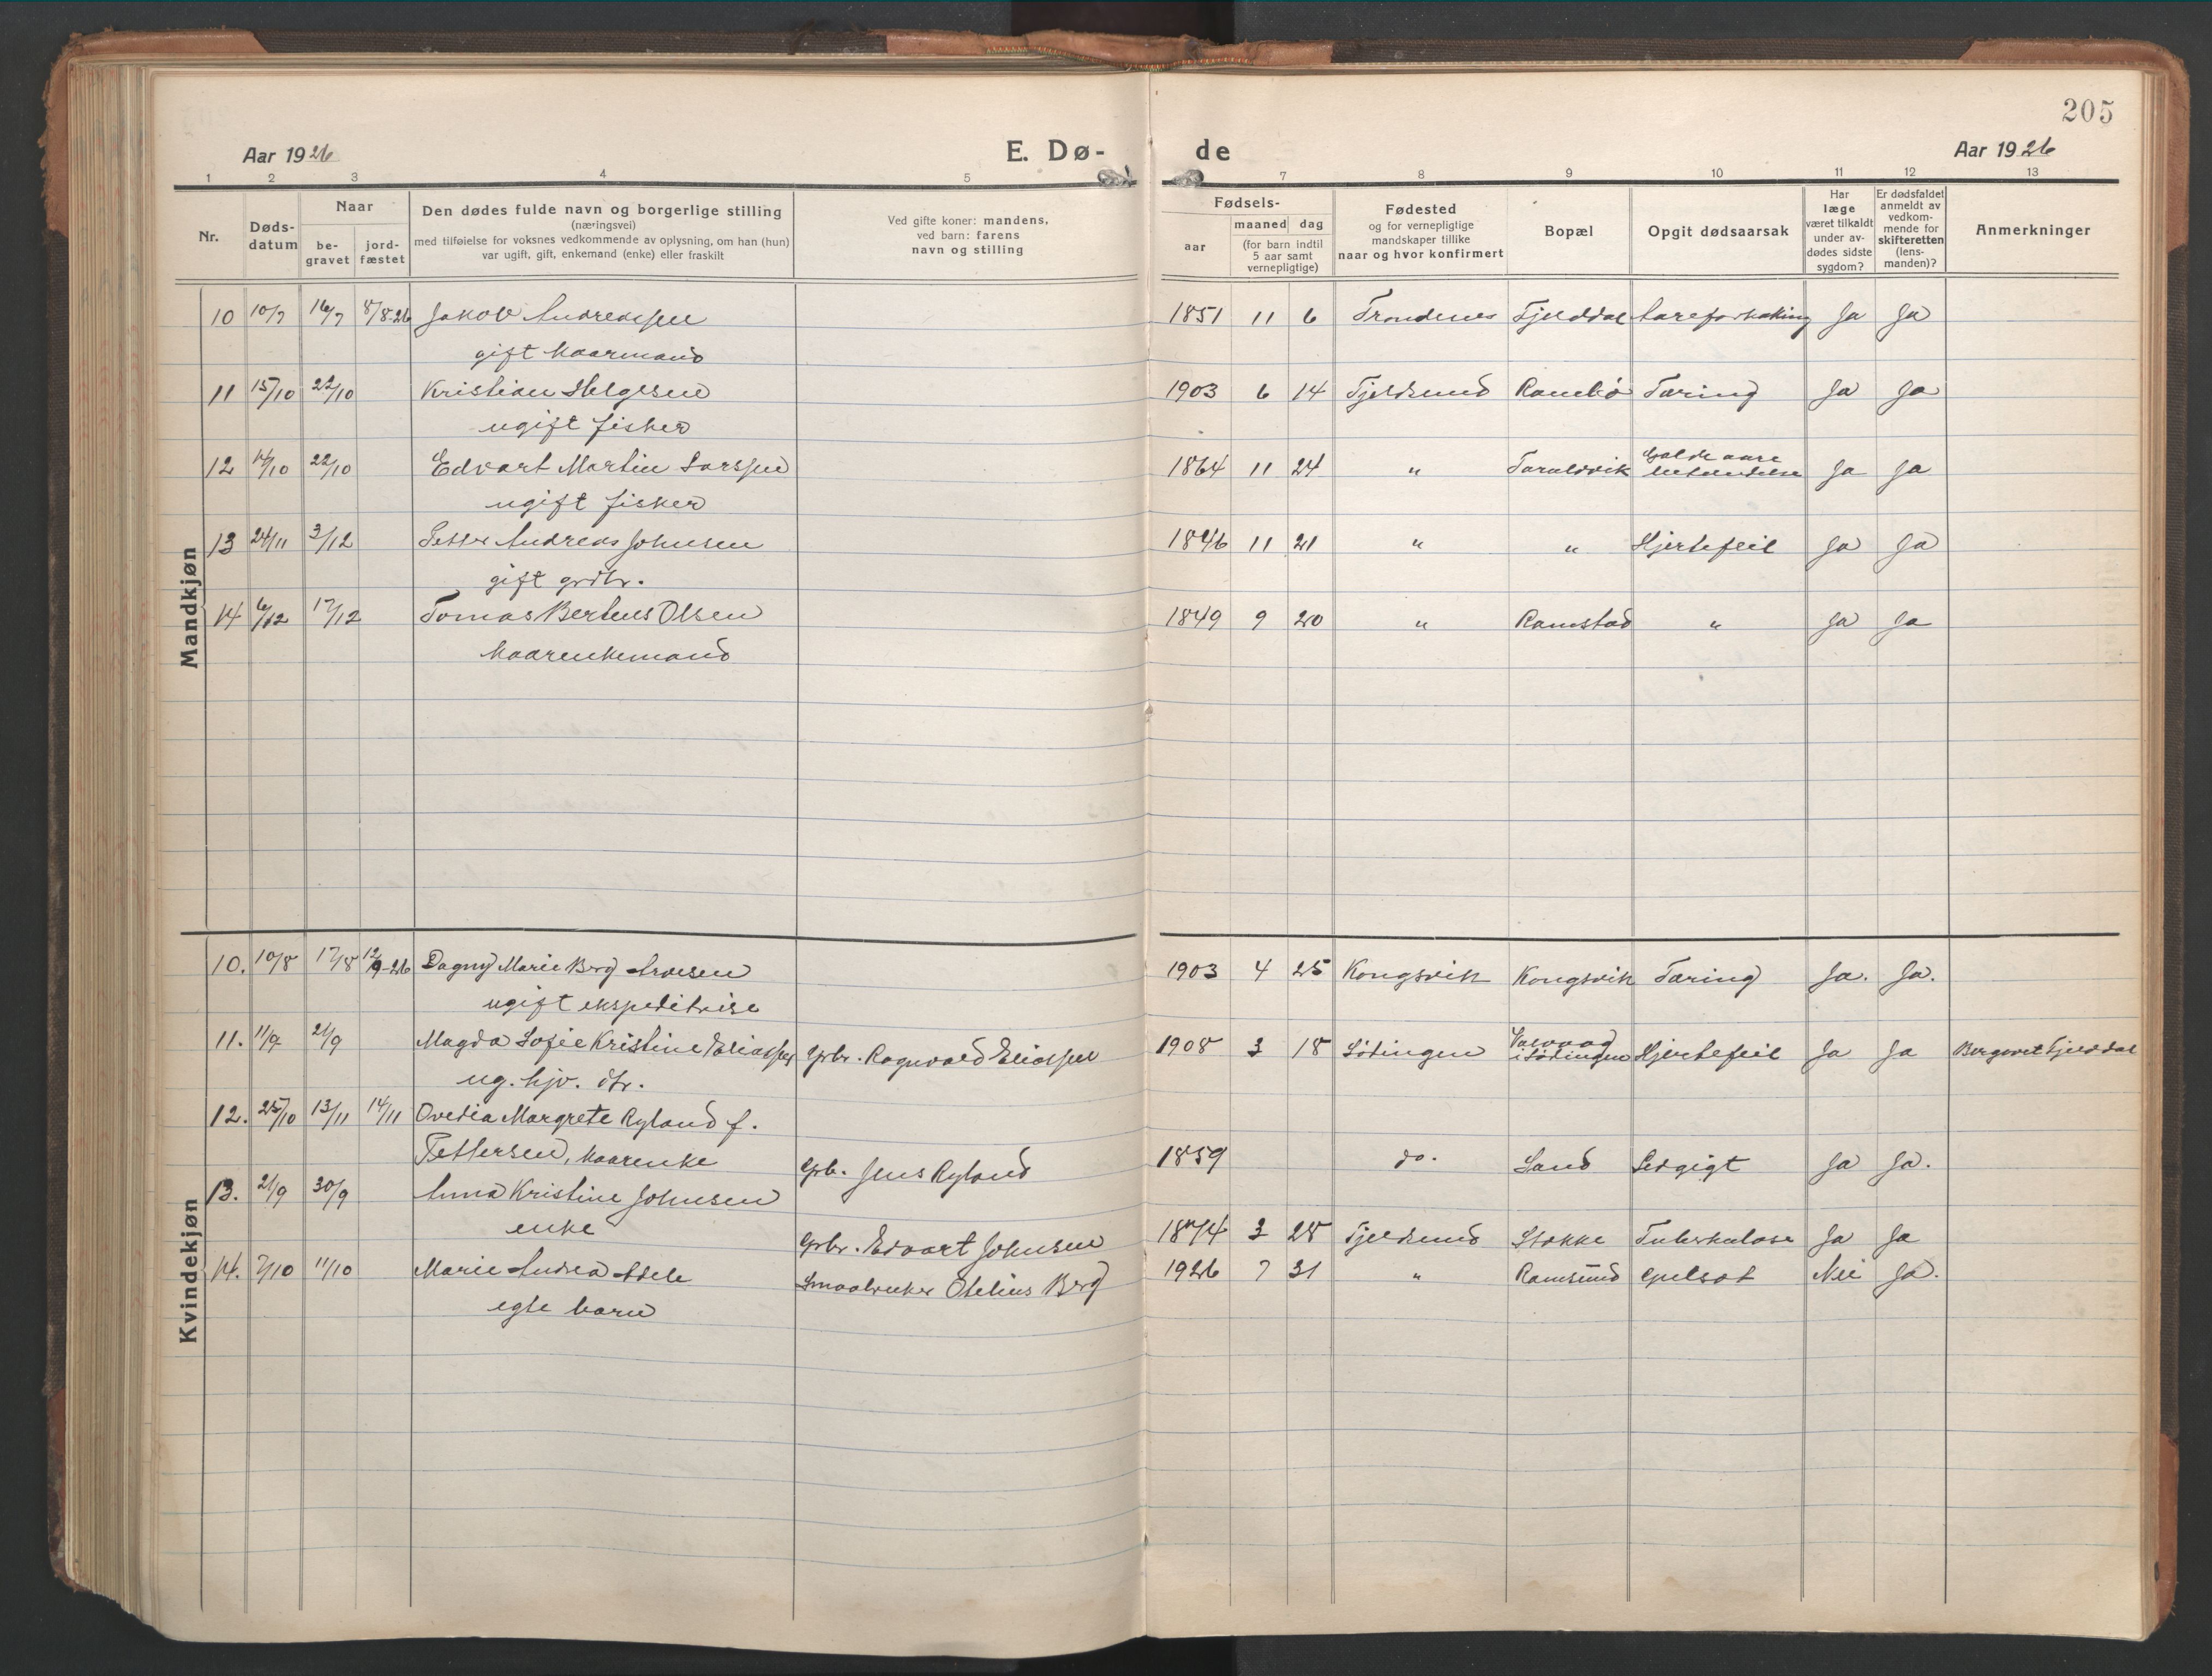 205
Aar 1926 E. Dø- de Aar 1926
1 2 3 4 5 7 8 9 10 11 12 13
Nr.
Døds-
datum
Naar
be-
gravet
jord-
fæstet
Den dødes fulde navn og borgerlige stilling
(næringsvei)
med tilføielse for voksnes vedkommende av oplysning, om han (hun)
var ugift, gift, enkemand (enke) eller fraskilt
Ved gifte koner: mandens,
ved barn: farens
navn og stilling
Fødsels-
aar
maaned dag
(for barn indtil
5 aar samt
vernepligtige)
Fødested
og for vernepligtige
mandskaper tillike
naar og hvor konfirmert
Bopæl
Opgit dødsaarsak
Har
læge
været tilkaldt
under av-
dødes sidste
sygdom?
Er dødsfaldet
anmeldt av
vedkom-
mende for
skifteretten
(lens-
manden)?
Anmerkninger
Mandkjøn
10 10/7 16/7 8/8-26 Jakob Andreassen 1851 11 6 Trondenes Fjelddal Aareforkalking Ja Ja
gift kaarmand
11 15/10 22/10 Kristian Helgesen 1903 6 14 Tjeldsund Rambø Tæring Ja Ja
ugift fisker
12 14/10 22/10 Edvart Martin Larssen 1864 11 24 " Taraldvik Galdeaare Ja Ja
betændelse
ugift fisker
13 24/11 3/12 Petter Andreas Johnsen 1846 11 21 " " Hjertefeil Ja Ja
gift grdbr.
14 6/12 17/12 Tomas Berteus Olsen 1849 9 20 " Ramstad " Ja Ja
kaarenkemand
Kvindekjøn
10. 10/8 17/8 12/9-26 Dagny Marie Berg Arvesen 1903 4 25 Kongsvik Kongsvik Tæring Ja. Ja.
ugift ekspeditrise
11. 11/9 21/9 Magda Sofie Kristine Eliassen Grbr. Ragnvald Eliassen 1908 3 18 Lødingen i Lødingen Hjertefeil Ja Ja Begravet Fjelddal
ug. hjv. dtr.
12. 25/10 13/11 14/11 Ovedia Margrete Ryland f.
Pettersen, kaarenke Grb. Jens Ryland 1859 do. Sand Ledgigt Ja Ja.
13. 21/9 30/9 Anna Kristine Johnsen
enke Grbr. Edvart Johnsen 1874 3 28 Tjeldsund Stokke Tuberkulose Ja Ja
14. 7/10 11/10 Marie Andrea Adele Smaabruker Otelius Berg 1926 7 31 " Ramsund Gulsot Nei Ja.
egte barn